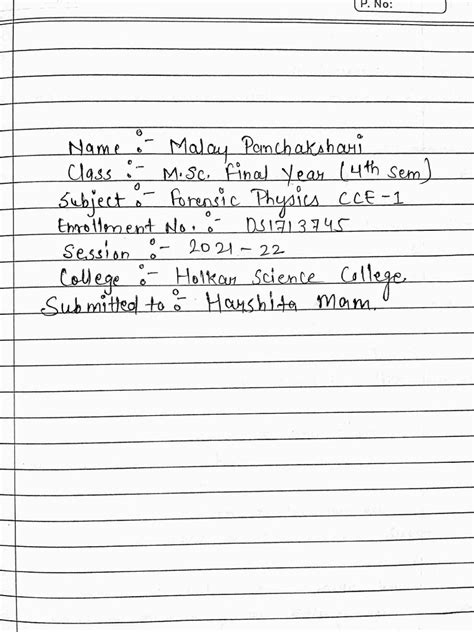 P. No:
Name :- Malay Panchakshari
Class :- M.Sc. Final Year (4th Sem)
Subject :- Forensic Physics CCE-1
Enrollment No. :- DS1713745
Session :- 2021-22
College :- Holkar Science College.
Submitted to :- Harshita Mam.